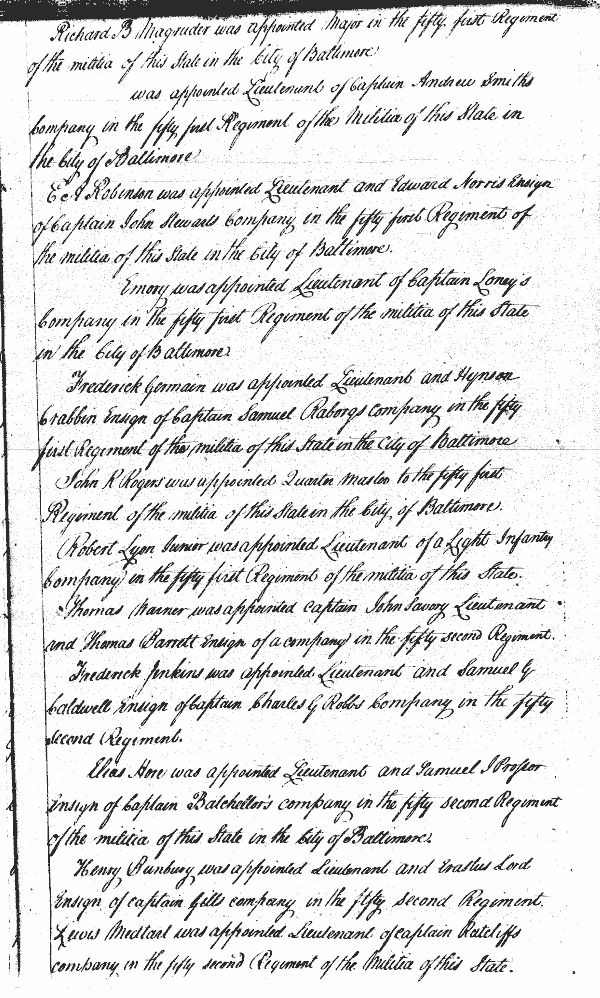 Richard B Magruder was appointed Major in the fifty first Regiment
of the militia of this State in the City of Baltimore
was appointed Lieutenant of Captain Andrew Smiths
Company in the fifty first Regiment of the Militia of this State in
the City of Baltimore
Robinson was appointed Lieutenant and Edward Norris Ensign
of Captain John Stewarts Company in the fifty first Regiment of
the militia of this State in the City of Baltimore.
Emory was appointed Lieutenant of Captain Loney's
Company in the fifty first Regiment of the militia of this State
in the City of Baltimore
Frederick Germain was appointed Lieutenant and Hynson
Crabbin Ensign of Captain Samuel Raborgs Company in the fifty
first Regiment of the militia of this State in the City of Baltimore
John R Rogers was appointed Quarter Master to the fifty first
Regiment of the militia of this State in the City of Baltimore.
Robert Lyon Junior was appointed Lieutenant of a Light Infantry
Company in the fifty first Regiment of the militia of this State.
Thomas Warner was appointed Captain John Savory Lieutenant
and Thomas Barrett Ensign of a company in the fifty second Regiment.
Frederick Jenkins was appointed Lieutenant and Samuel G
Caldwell Ensign of Captain Charles G Robbs Company in the fifty
second Regiment.
Elias Hore was appointed Lieutenant and Samuel I
Ensign of Captain Batchellor's company in the fifty second Regiment
of the militia of this State in the City of Baltimore.
Henry Bunbury was appointed Lieutenant and Erastus Lord
Ensign of captain Gills company in the fifty second Regiment.
Lewis Medtart was appointed Lieutenant of captain Ratcliffs
company in the fifty second Regiment of the Militia of this State.